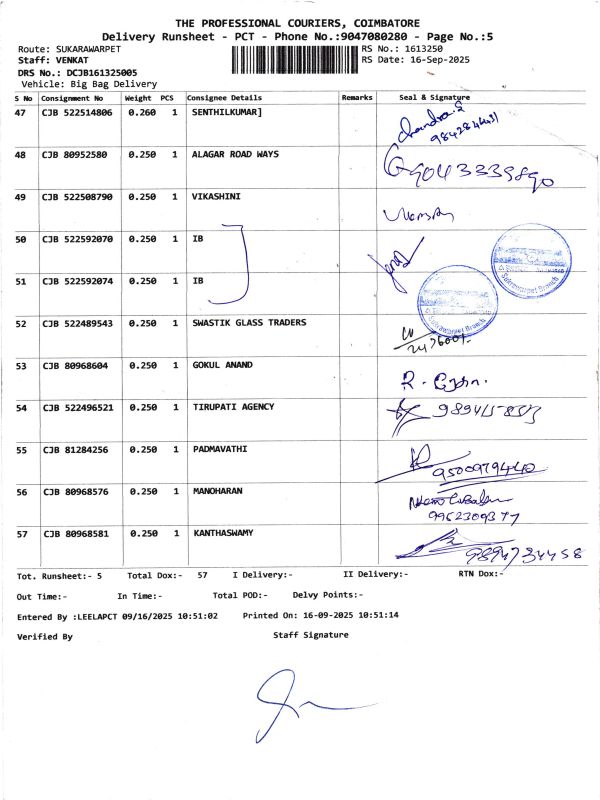 THE PROFESSIONAL COURIERS, COIMBATORE
Delivery Runsheet - PCT - Phone No.:9047080280 - Page No.:5
Route: SUKARAWARPET RS No.: 1613250
Staff: VENKAT RS Date: 16-Sep-2025
DRS No.: DCJB161325005
Vehicle: Big Bag Delivery
S No Consignment No Weight PCS Consignee Details Remarks Seal & Signature
47 CJB 522514806 0.260 1 SENTHILKUMAR]
48 CJB 80952580 0.250 1 ALAGAR ROAD WAYS
49 CJB 522508790 0.250 1 VIKASHINI
50 CJB 522592070 0.250 1 IB
51 CJB 522592074 0.250 1 IB
Sukrawarpet Branch
Sukrawarpet Branch
52 CJB 522489543 0.250 1 SWASTIK GLASS TRADERS
53 CJB 80968604 0.250 1 GOKUL ANAND
54 CJB 522496521 0.250 1 TIRUPATI AGENCY
55 CJB 81284256 0.250 1 PADMAVATHI
9500979440
56 CJB 80968576 0.250 1 MANOHARAN
9962309377
57 CJB 80968581 0.250 1 KANTHASWAMY
9894734458
Tot. Runsheet:- 5 Total Dox:- 57 I Delivery:- II Delivery:- RTN Dox:-
Out Time:- In Time:- Total POD:- Delvy Points:-
Entered By :LEELAPCT 09/16/2025 10:51:02 Printed On: 16-09-2025 10:51:14
Verified By Staff Signature